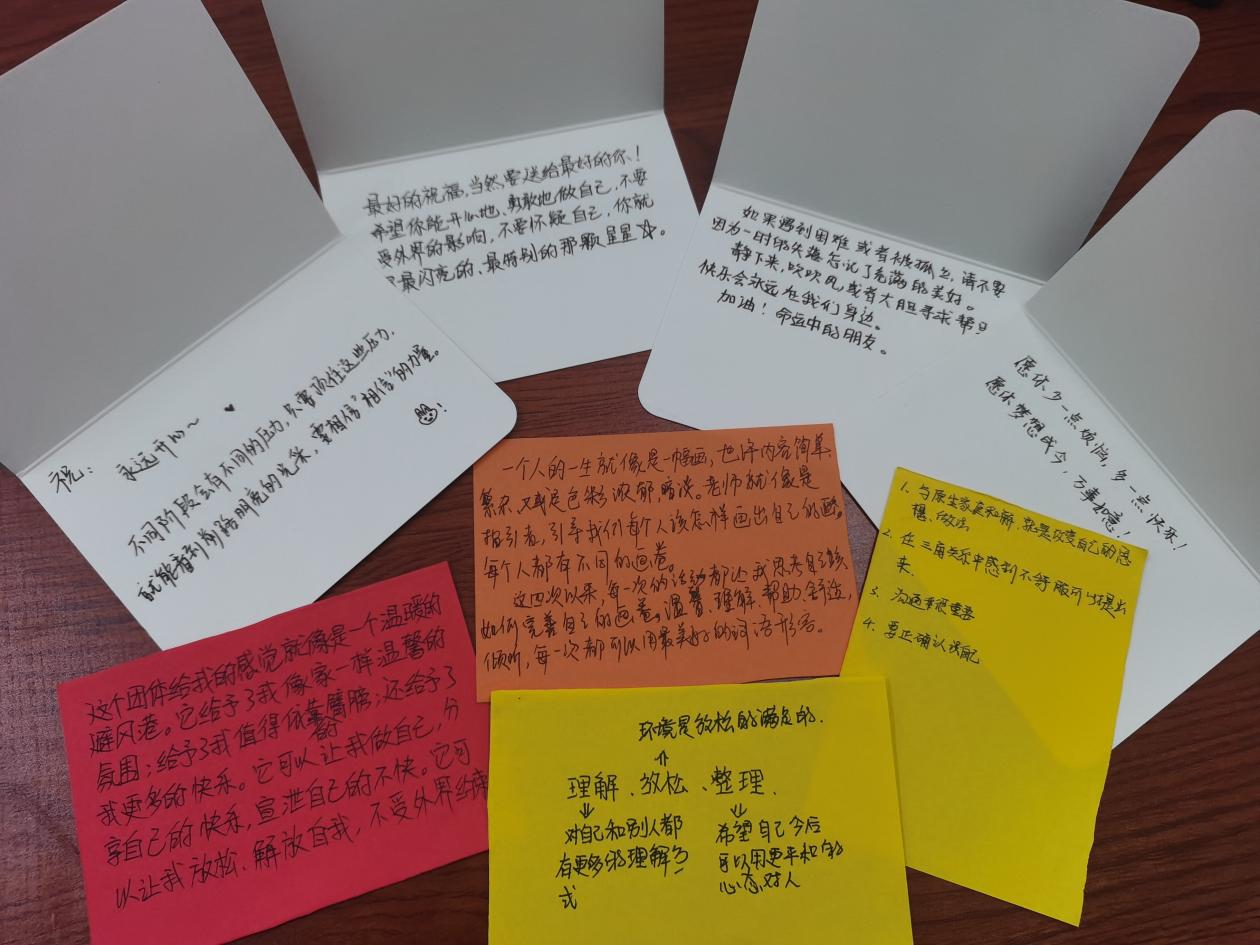 最好的祝福,当然要送给最好的你!
希望你能开心地、勇敢地做自己,不要
受外界的影响,不要怀疑自己,你就
是最闪亮的、最特别的那颗星星☆。
如果遇到困难或者被孤立,请不要
因为一时的失落忘记了充满的美好。
静下来,吹吹风,或者大胆寻求帮
快乐会永远在我们身边。
加油!命运中的朋友。
祝: 永远开心~ ♥
不同阶段会有不同的压力,只要顶住这些压力,
就能看到前路明亮的光采,要相信“相信”的力量。
愿你少一点烦恼,多一点快乐!
愿你梦想成今,万事如意!
一个人的一生就像是一幅画,也许内容简单、
繁杂,又或是色彩浓郁、暗淡。老师就像是
指引者,引导我们每个人该怎样画出自己的画。
每个人都有不同的画卷。
这四次以来,每一次的活动都让我思考自己该
如何完善自己的画卷。温馨、理解、帮助、舒适,
倾听,每一次都可以用最美好的词语形容。
1. 与原生家庭和解,就是改变自己的思
想、做法
2. 在三角关系中感到不舒服可以提出
来
3. 沟通非常重要
4. 要正确认识自己
这个团体给我的感觉就像是一个温暖的
避风港。它给予了我像家一样温馨的
氛围;给予了我值得依靠臂膀;还给予了
我更多的快乐。它可以让我做自己,分
享自己的快乐,宣泄自己的不快。它可
以让我放松、解放自我,不受外界约束
环境是放松的满足的.
⇑
理解、放松、整理.
⇓ ⇓
对自己和别人都
有更多的理解方
式
希望自己今后
可以用更平和的
心态对人